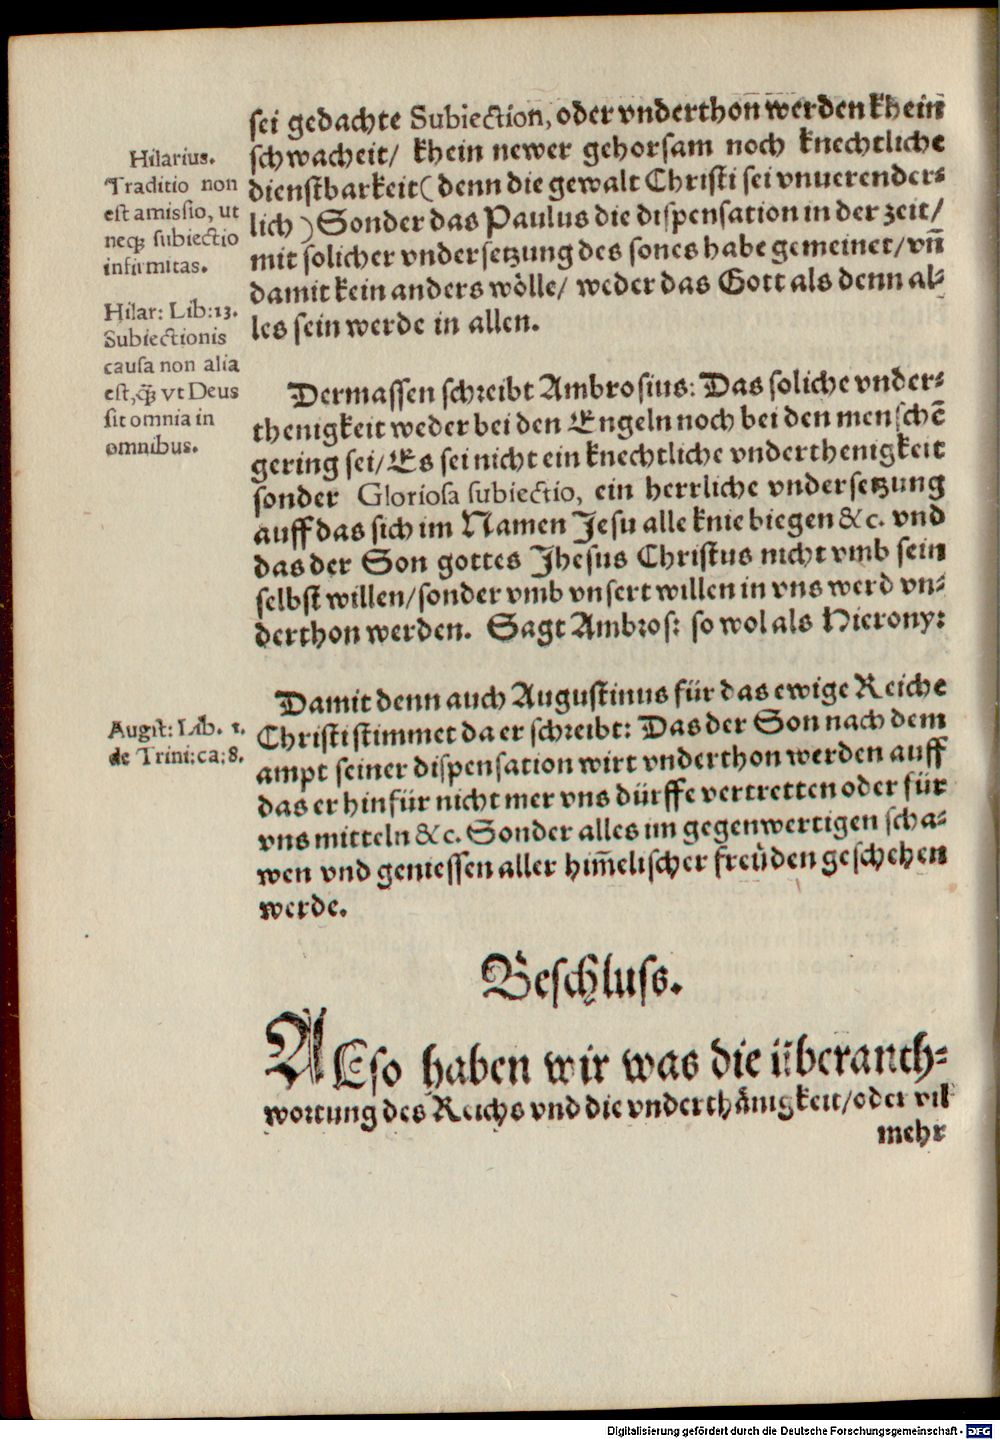 sei gedachte Subiection, oder vnderthon werden khein
schwacheit/ khein newer gehorsam noch knechtliche
dienstbarkeit (denn die gewalt Christi sei vnuerender-
lich) Sonder das Paulus die dispensation in der zeit/
mit solicher vndersetzung des sones habe gemeinet/ vñ
damit kein anders wölle/ weder das Gott als denn al-
les sein werde in allen.
Hilarius.
Traditio non
est amissio, ut
neqʒ subiectio
infirmitas.
Hilar: Lib:13.
Subiectionis
causa non alia
est, q̃ʒ vt Deus
sit omnia in
omnibus.
Dermassen schreibt Ambrosius: Das soliche vnder-
thenigkeit weder bei den Engeln noch bei den menschẽ
gering sei/ Es sei nicht ein knechtliche vnderthenigkeit
sonder Gloriosa subiectio, ein herrliche vndersetzung
auff das sich im Namen Jesu alle knie biegen &c. vnd
das der Son gottes Jhesus Christus nicht vmb sein
selbst willen/ sonder vmb vnsert willen in vns werd vn-
derthon werden. Sagt Ambros: so wol als Hierony:
Damit denn auch Augustinus für das ewige Reiche
Christi stimmet da er schreibt: Das der Son nach dem
ampt seiner dispensation wirt vnderthon werden auff
das er hinfür nicht mer vns dürffe vertretten oder für
vns mitteln &c. Sonder alles im gegenwertigen scha-
wen vnd geniessen aller him̃elischer freüden geschehen
werde.
Augst: Lib. 1.
de Trini: ca: 8.
Beschluss.
ALso haben wir was die überanth-
wortung des Reichs vnd die vnderthänigkeit/ oder vil
mehr
Digitalisierung gefördert durch die Deutsche Forschungsgemeinschaft - DFG